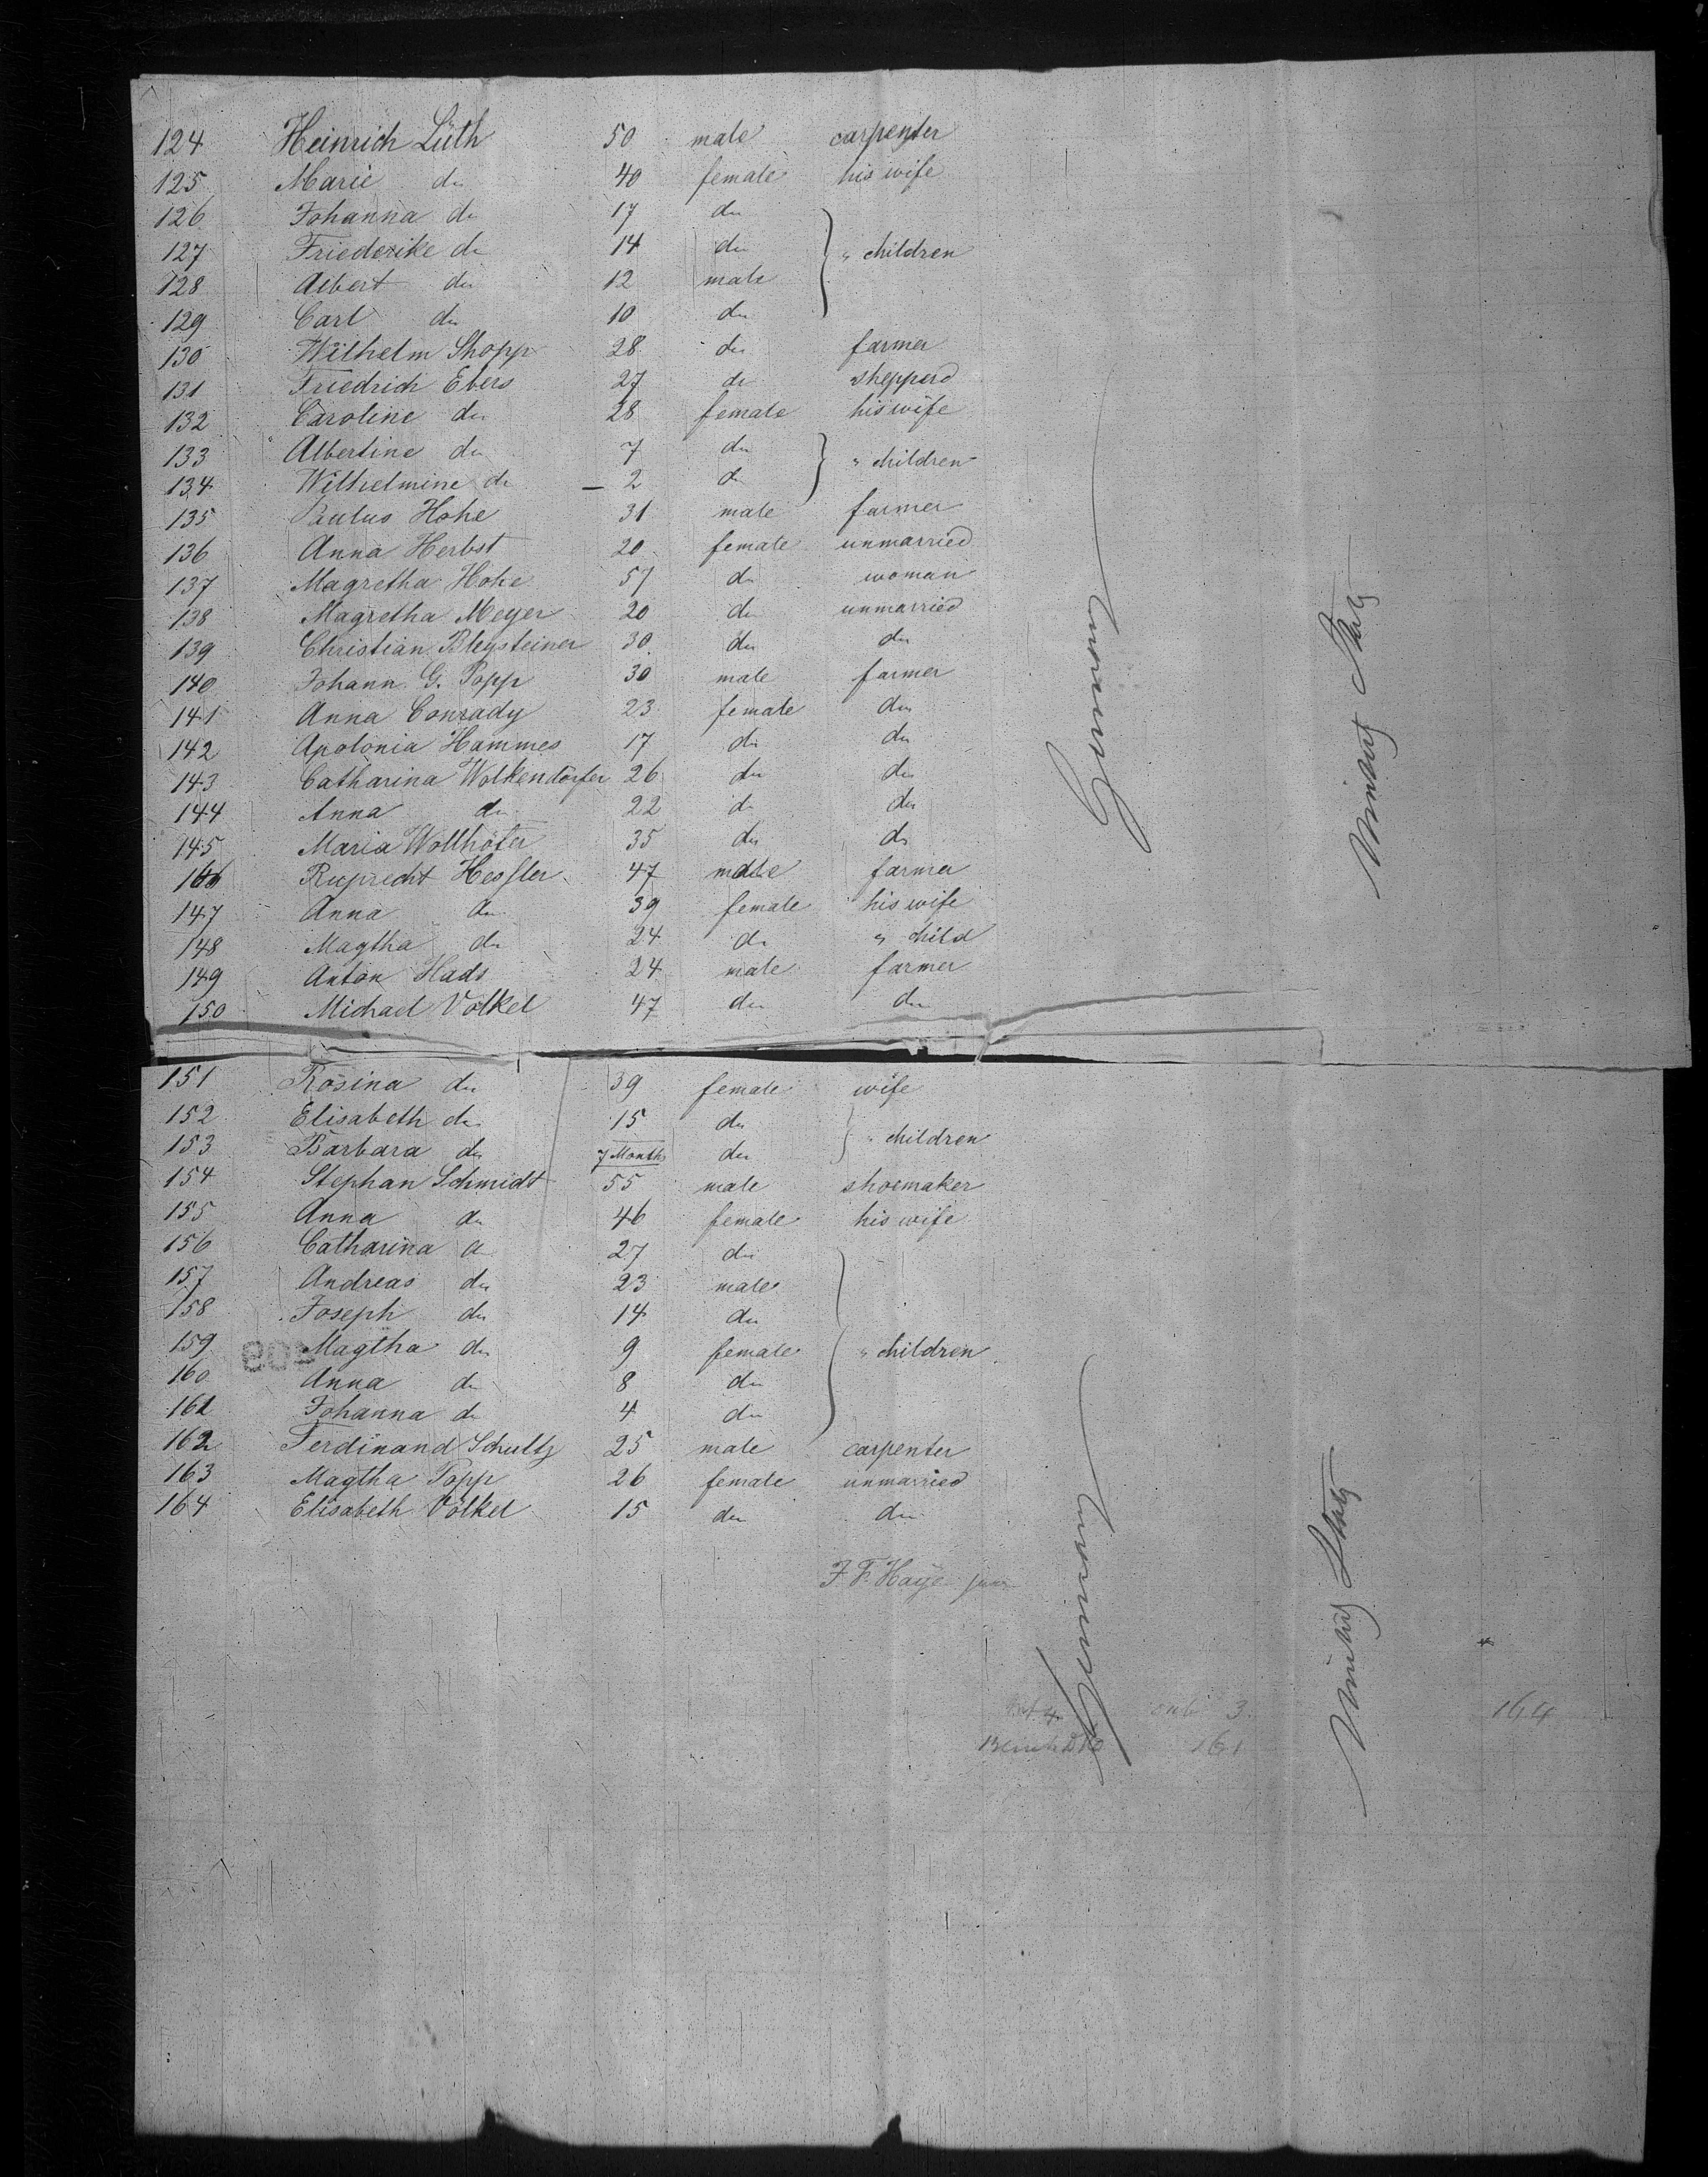 124 Heinrich Lüth 50 male carpenter
125 Marie do 40 female his wife
126 Johanna do 17 do
127 Friederike do 14 do " children
128 Albert do 12 male
129 Carl do 10 do
130 Wilhelm Shopp 28 do farmer
131 Friedrich Ebers 27 do shepperd
132 Caroline do 28 female his wife
133 Albertine do 7 do " children
134 Wilhelmine do 2 do
135 Paulus Hohe 31 male farmer
136 Anna Herbst 20 female unmarried
137 Magretha Hohe 57 do woman
138 Magretha Meyer 20 do unmarried
139 Christian Bleysteiner 30 do do
140 Johann G. Popp 30 male farmer
141 Anna Conrady 23 female do
142 Apolonia Hammes 17 do do
143 Catharina Wolkendörfer 26 do do
144 Anna do 22 do do
145 Maria Wollhöfer 35 do do
146 Ruprecht Hessler 47 male farmer
147 Anna do 39 female his wife
148 Magtha do 24 do " child
149 Anton Hads 24 male farmer
150 Michael Völkel 47 do do
151 Rosina do 39 female wife
152 Elisabeth do 15 do
153 Barbara do 7 Month do " children
154 Stephan Schmidt 55 male shoemaker
155 Anna do 46 female his wife
156 Catharina do 27 do
157 Andreas do 23 male
158 Joseph do 14 do
159 Magtha do 9 female " children
160 Anna do 8 do
161 Johanna do 4 do
162 Ferdinand Schultz 25 male carpenter
163 Magtha Popp 26 female unmarried
164 Elisabeth Völkel 15 do do
Germany
Germany
3.
161
164